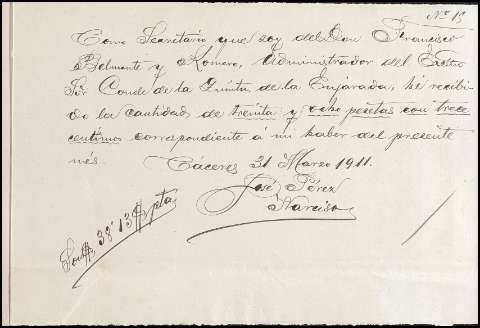 Nº 13
Como Secretario que soy del Don Francisco
Belmonte y Romero, Administrador del Excmo
Sór Conde de la Quinta de la Enjarada, hé recibi-
do la cantidad de treinta y ocho pesetas con trece
centimos correspondiente á mi haber del presente
més.
Cáceres 31 Marzo 1911.
José Pérez
Narciso
Son # 38'13 # pta